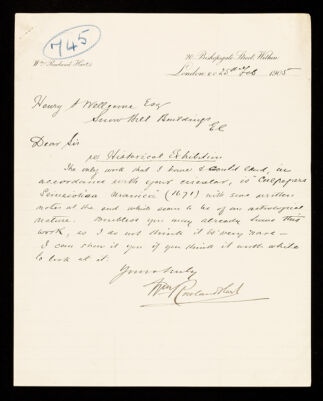 745
Wm Rowland Hart.
70 Bishopsgate Street, Within
London, E.C. 25th Feb 1905
Henry S Wellcome Esq
Snow Hill Buildings
E.C
Dear Sir
re Historical Exhibition
The only work that I have & could lend, in
accordance with your circular, is "Culpepers
Semeiotica Uranica" (1671) with some written
notes at the end which seem to be of an astrological
nature. Doubtless you may already have this
work, as I do not think it is very rare –
I can show it you if you think it worth while
to look at it.
Yours truly
Wm Rowland Hart